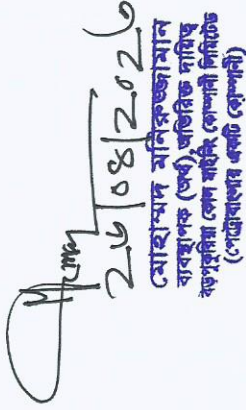 ২৬/০৪/২০২৬
মোহাম্মদ মনিরুজ্জামান
ব্যবস্থাপক (অর্থ) অতিরিক্ত দায়িত্ব
বড়পুকুরিয়া কোল মাইনিং কোম্পানী লিমিটেড
(পেট্রোবাংলার একটি কোম্পানী)